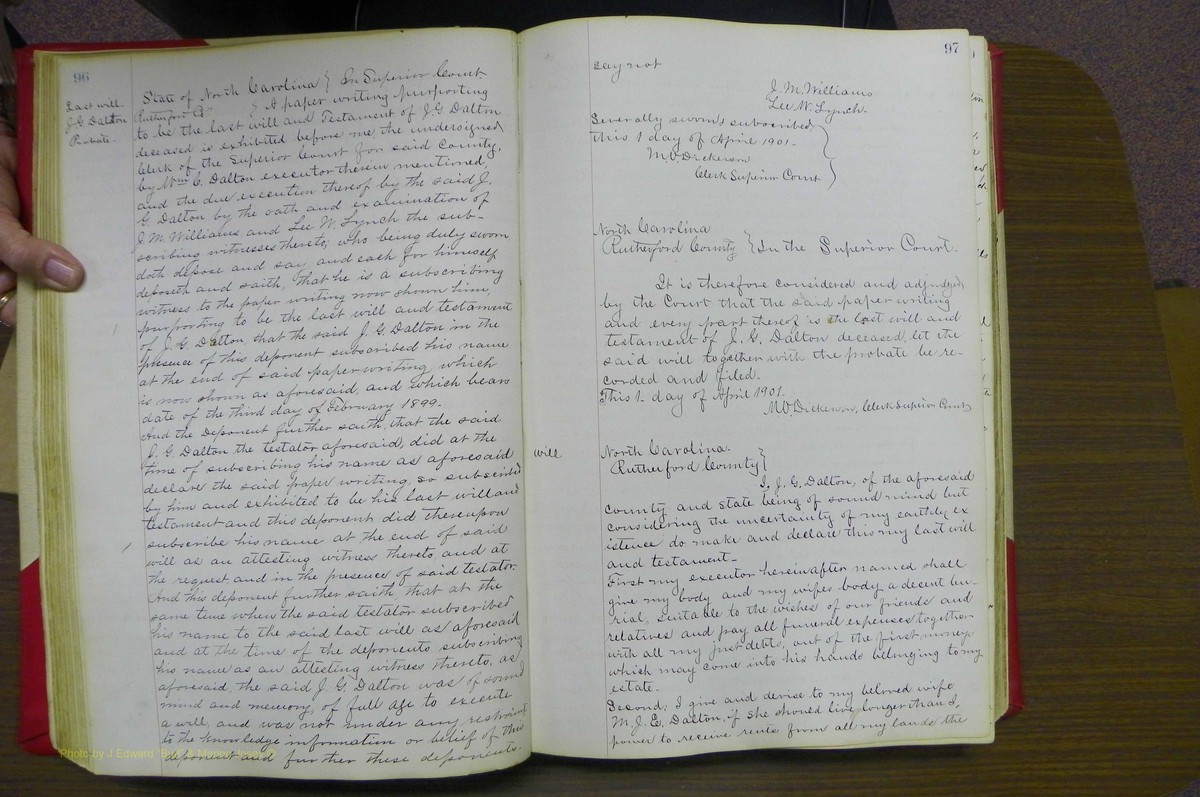 96
Last will
J. G. Dalton
Probate.
State of North Carolina } In Superior Court
Rutherford Co } A paper writing purporting
to be the last will and Testament of J. G. Dalton
deceased is exhibited before me the undersigned
Clerk of the Superior Court for said County,
by Wm C. Dalton executor therein mentioned,
and the due execution thereof by the said J.
G. Dalton by the oath and examination of
J. M. Williams and Lee W. Lynch the sub-
scribing witnesses thereto; who being duly sworn
doth depose and say, and each for himself
deposeth and saith, that he is a subscribing
witness to the paper writing now shown him,
purporting to be the last will and testament
of J. G. Dalton, that the said J. G. Dalton in the
presence of this deponent subscribed his name
at the end of said paper writing, which
is now shown as aforesaid, and which bears
date of the third day of February 1899.
And the Deponent further saith, that the said
J. G. Dalton the testator aforesaid, did at the
time of subscribing his name as aforesaid
declare the said paper writing, so subscribed
by him and exhibited to be his last will and
testament and this deponent did thereupon
subscribe his name at the end of said
will as an attesting witness thereto, and at
the request and in the presence of said testator.
And this deponent further saith, that at the
same time when the said testator subscribed
his name to the said last will as aforesaid
and at the time of the deponents subscribing
his name as an attesting witness thereto, as
aforesaid, the said J. G. Dalton was of sound
mind and memory, of full age to execute
a will, and was not under any restraint
to the knowledge information or belief of this
deponent and further these deponents
97
say not
J. M. Williams
Lee W. Lynch.
Severally sworn & subscribed
this 1 day of April 1901.
M O Dickerson
Clerk Superior Court
North Carolina
Rutherford County } In the Superior Court.
It is therefore considered and adjudged
by the Court that the said paper writing
and every part thereof is the last will and
testament of J. G. Dalton deceased, let the
said will together with the probate be re-
corded and filed.
This 1 day of April 1901.
M O Dickerson, Clerk Superior Court
will
North Carolina.
Rutherford County }
I, J. G. Dalton, of the aforesaid
county and state being of sound mind but
considering the uncertainty of my earthly ex
istence do make and declare this my last will
and testament-
First my executor hereinafter named shall
give my body and my wifes body a decent bu-
rial, suitable to the wishes of our friends and
relatives and pay all funeral expenses together
with all my just debts, out of the first moneys
which may come into his hands belonging to my
estate.
Second: I give and devise to my beloved wife
M. J. E. Dalton, if she should live longer than I,
power to receive rents from all my lands the